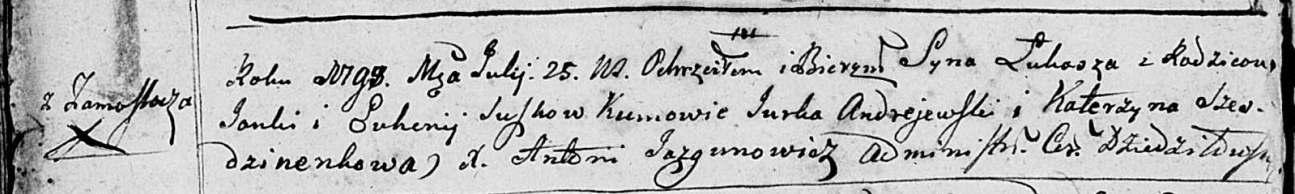 z Zamostocza
Roku 1798. Mca Julij. 25. M. Ochrzciłem i Bierzm Syna Łukasza z Rodzicow
Janki i Euhenij Suszkow Kumowie Jurka Andrejewski i Katerzyna Szew-
dzinenkowa) X. Antoni Jazgunowicz Administr. Cer. Dziedziłows